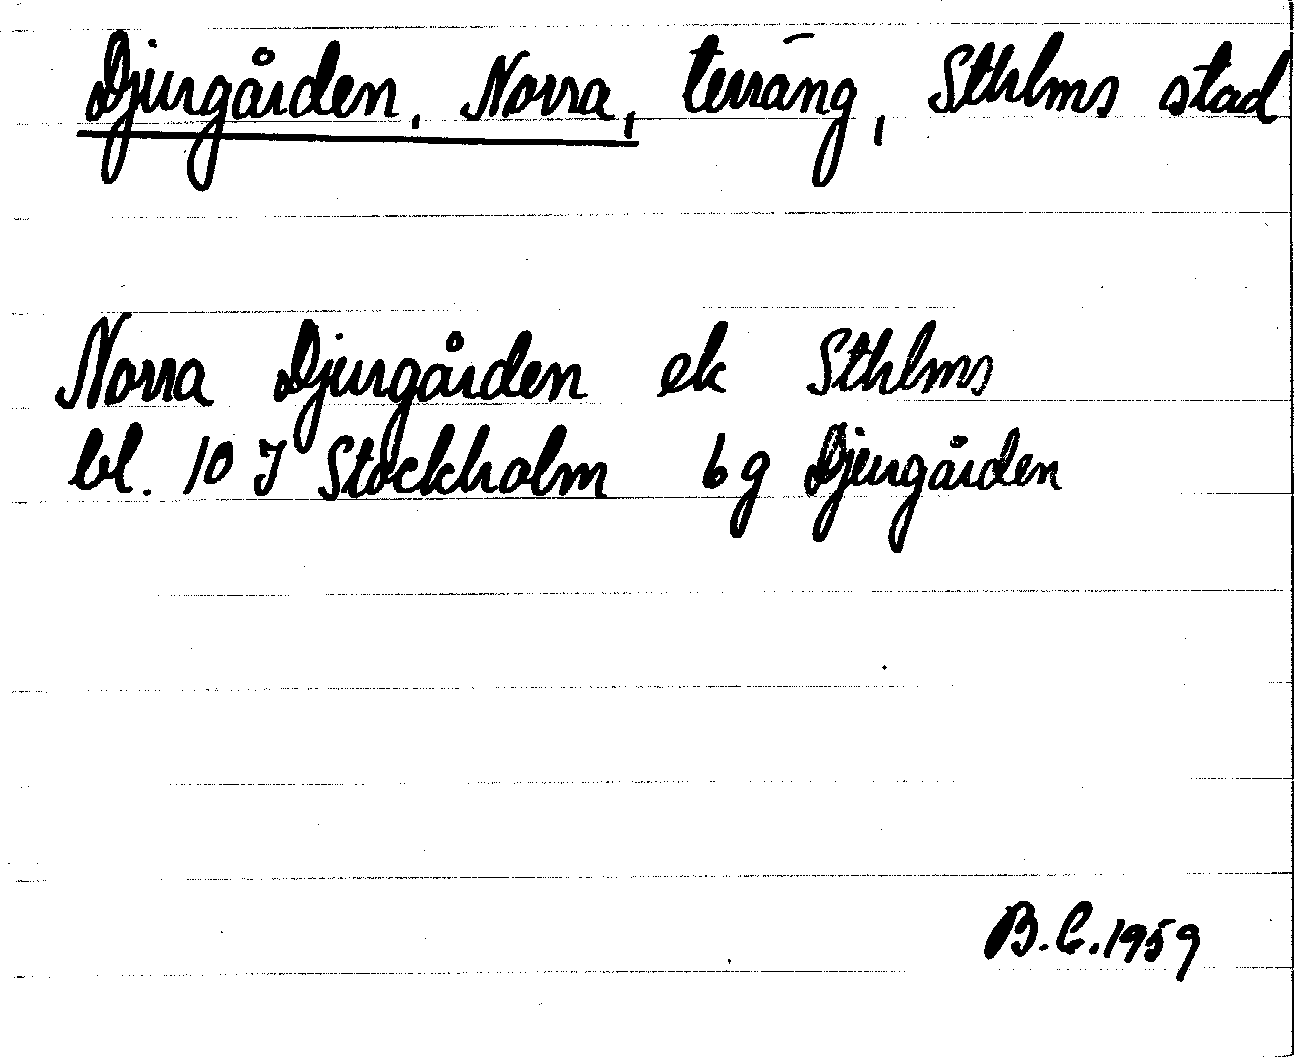 Djurgården, Norra, terräng, Sthlms stad
Norra Djurgården ek Sthlms
bl. 10 I Stockholm 6 g Djurgården
B.C. 1959